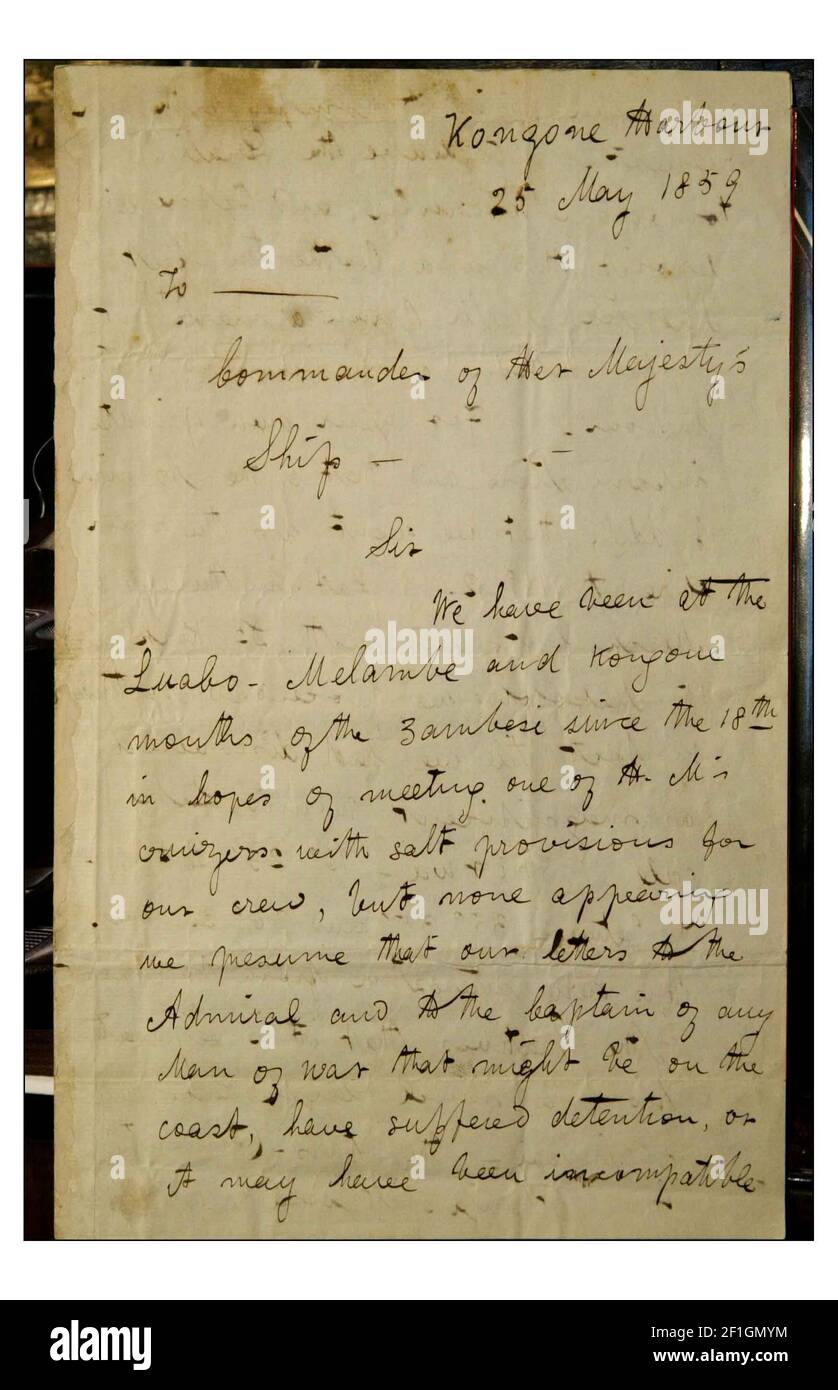 Kongone Harbour
25 May 1859
To ———
Commander of Her Majesty's
Ship — —
Sir
We have been at the
Luabo - Melambe and Kongone
mouths of the Zambesi since the 18th
in hopes of meeting one of H. M's
cruizers with salt provisions for
our crew, but none appearing
we presume that our letters to the
Admiral and to the Captain of any
Man of war that might be on the
coast, have suffered detention, or
it may have been incompatible
alamy
alamy
alamy
a
alamy
Image ID: F1GMYM
www.alamy.com